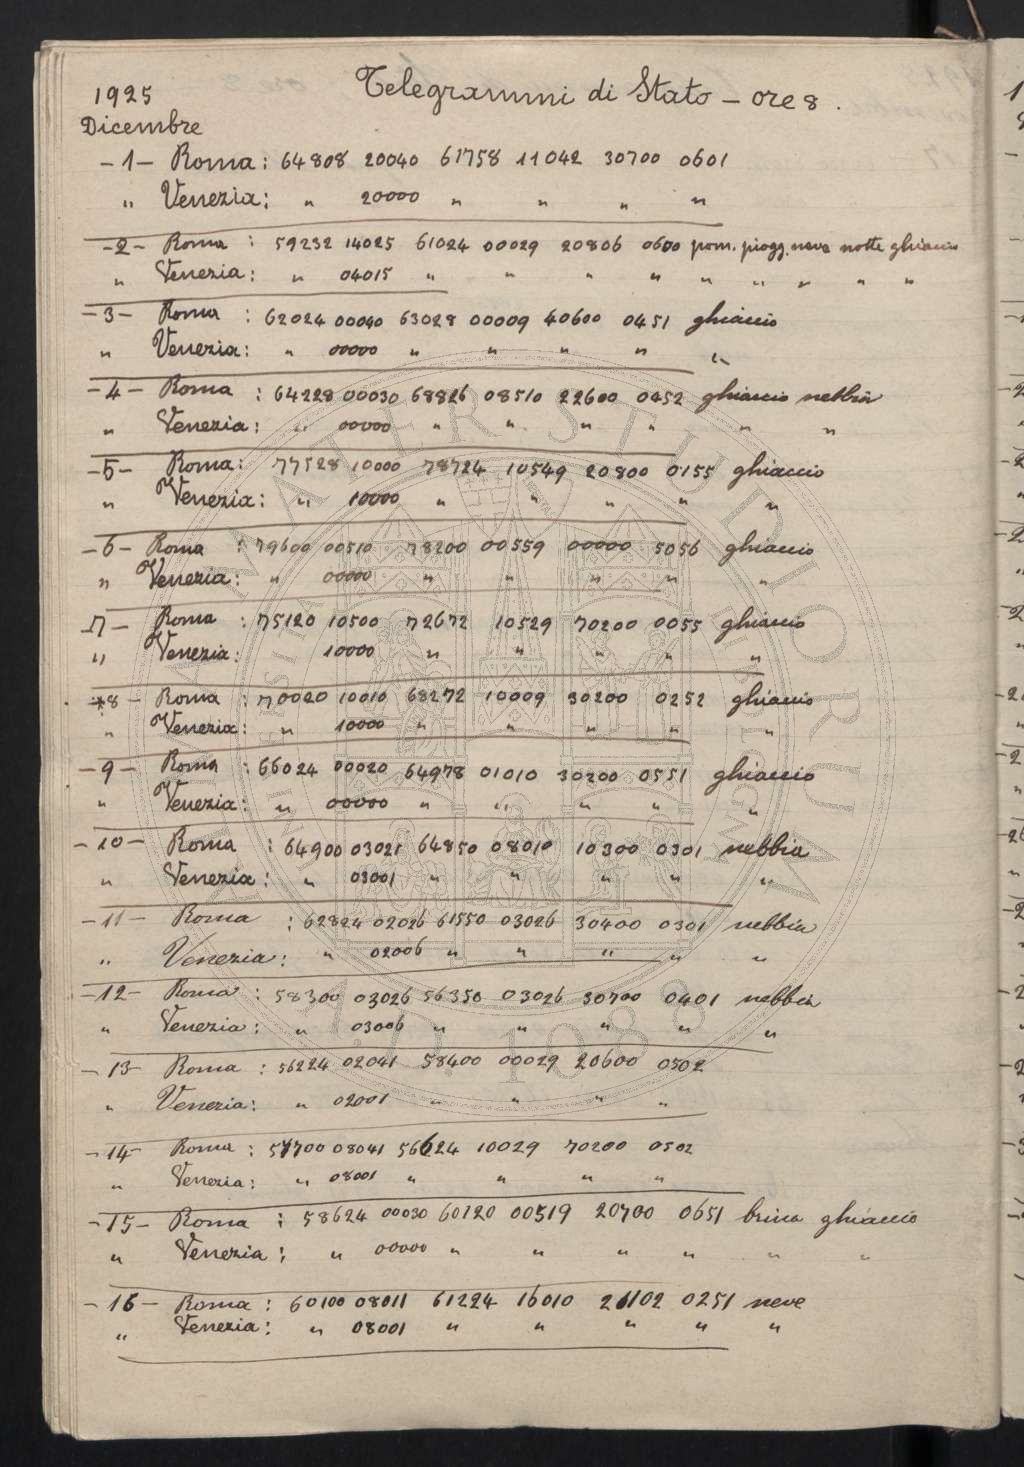 1925
Telegrammi di Stato – ore 8.
Dicembre
– 1 – Roma : 64808 20040 61758 11042 30700 0601
" Venezia : " 20000 " " " "
– 2 – Roma : 59232 14025 61024 00029 20806 0600 pom. piogg. neve notte ghiaccio
" Venezia : " 04015 " " " " " " " " "
– 3 – Roma : 62024 00040 63028 00009 40600 0451 ghiaccio
" Venezia : " 00000 " " " " "
– 4 – Roma : 64228 00030 68826 08510 22600 0452 ghiaccio nebbia
" Venezia : " 00000 " " " " " "
– 5 – Roma : 77528 10000 78724 10549 20800 0155 ghiaccio
" Venezia : " 10000 " " " " "
– 6 – Roma : 79600 00510 78200 00559 00000 5056 ghiaccio
" Venezia : " 00000 " " " " "
– 7 – Roma : 75120 10500 72672 10529 70200 0055 ghiaccio
" Venezia : 10000 " " " " "
8 – Roma : 70020 10010 68272 10009 30200 0252 ghiaccio
" Venezia : " 10000 " " " " "
– 9 – Roma : 66024 00020 64978 01010 30200 0551 ghiaccio
" Venezia : " 00000 " " " " "
– 10 – Roma : 64900 03021 64850 08010 10300 0301 nebbia
" Venezia : " 03001 " " " " "
– 11 – Roma : 62824 02026 61550 03026 30400 0301 nebbia
" Venezia : " 02006 " " " " "
– 12 – Roma : 58300 03026 56350 03026 30700 0401 nebbia
" Venezia : " 03006 " " " " "
– 13 – Roma : 56224 02041 58400 00029 20600 0502
" Venezia : " 02001 " " " "
– 14 – Roma : 57700 08041 56624 10029 70200 0502
" Venezia : " 08001 " " " "
– 15 – Roma : 58624 00030 60120 00519 20700 0651 brina ghiaccio
" Venezia : " 00000 " " " " " "
– 16 – Roma : 60100 08011 61224 16010 21102 0251 neve
" Venezia : " 08001 " " " " "
ALMA MATER STUDIORUM
A.D. 1088